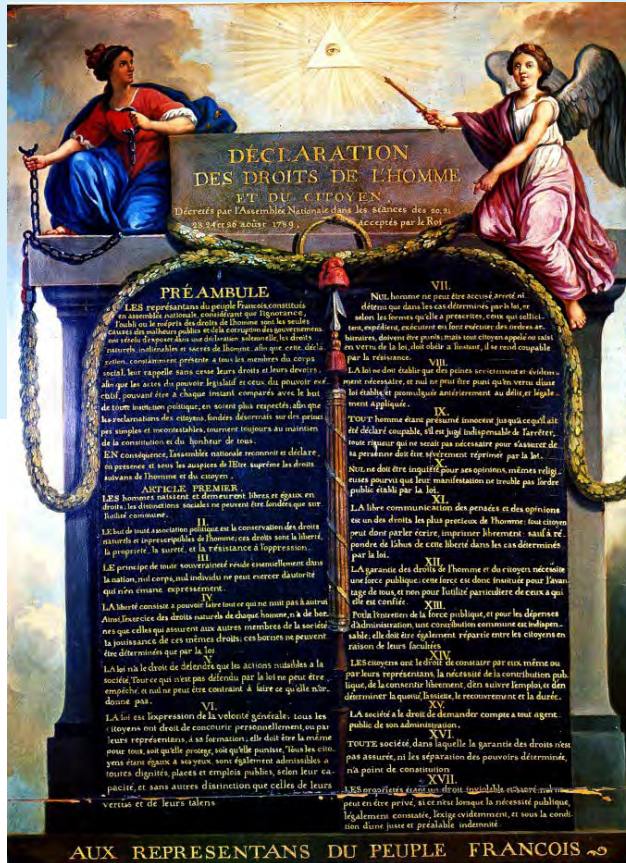 DÉCLARATION
DES DROITS DE L'HOMME
ET DU CITOYEN,
Décretés par l'Assemblée Nationale dans les séances des 20, 21
23, 24 et 26 août 1789, acceptés par le Roi
PRÉAMBULE
LES représentans du peuple François, constitués
en assemblée nationale, considérant que l'ignorance,
l'oubli ou le mépris des droits de l'homme sont les seules
causes des malheurs publics et de la corruption des gouvernemens
ont résolu d'exposer dans une déclaration solemnelle, les droits
naturels, inaliénables et sacrés de l'homme; afin que cette décla-
ration, constamment présente a tous les membres du corps
social, leur rappelle sans cesse leurs droits et leurs devoirs;
afin que les actes du pouvoir législatif et ceux du pouvoir exé-
cutif, pouvant être a chaque instant comparés avec le but
de toute institution politique, en soient plus respectés; afin que
les reclamations des citoyens, fondées désormais sur des prince
pes simples et incontestables, tournent toujours au maintien
de la constitution et du bonheur de tous.
EN conséquence, l'assemblée nationale reconnoit et déclare,
en présence et sous les auspices de l'Etre suprême les droits
suivans de l'homme et du citoyen.
ARTICLE PREMIER
LES hommes naissent et demeurent libres et égaux en
droits; les distinctions sociales ne peuvent être fondées que sur
l'utilité commune.
II.
LE but de toute association politique est la conservation des droits
naturels et inprescriptibles de l'homme; ces droits sont la liberté,
la propriété, la sureté, et la résistance à l'oppression.
III.
LE principe de toute souveraineté réside essentiellement dans
la nation, nul corps, nul individu ne peut exercer d'autorité
qui n'en émane expressement.
IV.
LA liberté consiste a pouvoir faire tout ce qui ne nuit pas à autrui
Ainsi, l'exercice des droits naturels de chaque homme, n'a de bor-
nes que celles qui assurent aux autres membres de la société
la jouissance de ces mêmes droits; ces bornes ne peuvent
être déterminées que par la loi
V.
LA loi n'a le droit de défendre que les actions nuisibles a la
société. Tout ce qui n'est pas défendu par la loi ne peut être
empêché, et nul ne peut être contraint à faire ce qu'elle n'or-
donne pas.
VI.
LA loi est l'expression de la volonté générale; tous les
citoyens ont droit de concourir personnellement, ou par
leurs représentans, à sa formation; elle doit être la même
pour tous, soit qu'elle protege, soit qu'elle punisse. Tous les cito-
yens étant égaux à ses yeux, sont également admissibles a
toutes dignités, places et emplois publics, selon leur ca-
pacité, et sans autres distinction que celles de leurs
vertus et de leurs talens
VII.
NUL homme ne peut être accusé, arreté, ni
détenu que dans les cas déterminés par la loi, et
selon les formes qu'elle a prescrites, ceux qui sollici-
tent, expédient, exécutent ou font exécuter des ordres ar-
bitraires, doivent être punis; mais tout citoyen appelé ou saisi
en vertu de la loi, doit obéir a l'instant, il se rend coupable
par la résistance.
VIII.
LA loi ne doit établir que des peines strictement et évidem-
ment nécessaire, et nul ne peut être puni qu'en vertu d'une
loi établie et promulguée antérierement au délit, et légale-
ment appliquée.
IX.
TOUT homme étant présumé innocent jusqu'a ce qu'il ait
été déclaré coupable, s'il est jugé indispensable de l'arrêter,
toute rigueur qui ne serait pas nécessaire pour s'assurer de
sa personne doit être sévèrement réprimée par la loi.
X.
NUL ne doit être inquiété pour ses opinions, mêmes religi-
euses pourvu que leur manifestation ne trouble pas l'ordre
public établi par la loi.
XI.
LA libre communication des pensées et des opinions
est un des droits les plus precieux de l'homme: tout citoyen
peut dont parler écrire, imprimer librement: sauf a ré-
pondre de l'abus de cette liberté dans les cas déterminés
par la loi.
XII.
LA garantie des droits de l'homme et du citoyen nécessite
une force publique: cette force est donc instituée pour l'avan-
tage de tous, et non pour l'utilité particuliere de ceux a qui
elle est confiée.
XIII.
Pour l'entretien de la force publique, et pour les dépenses
d'administration, une contribution commune est indispen-
sable; elle doit être également répartie entre les citoyens en
raison de leurs facultées
XIV.
LES citoyens ont le droit de constater par eux même ou
par leurs représentans, la nécessité de la contribution pub-
lique, de la consentir librement, d'en suivre l'emploi, et d'en
déterminer la quotité, l'assiette, le recouvrement et la durée.
XV.
LA société a le droit de demander compte a tout agent
public de son administration.
XVI.
TOUTE société, dans laquelle la garantie des droits n'est
pas assurée, ni les séparation des pouvoirs déterminée,
n'a point de constitution
XVII.
LES propriétés étant un droit inviolable et sacré, nul ne
peut en être privé, si ce n'est lorsque la nécessité publique,
légalement constatée, l'exige evidemment, et sous la condi-
tion d'une juste et préalable indemnité.
AUX REPRESENTANS DU PEUPLE FRANCOIS